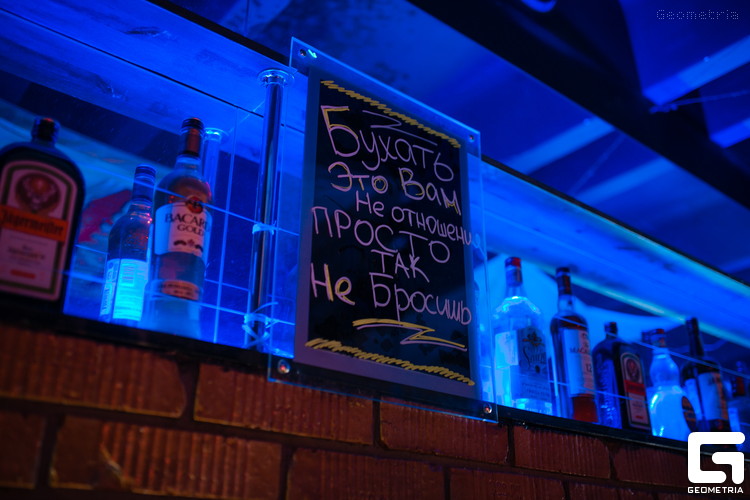 Geometria
Бухать
Это Вам
Не отношени
ПРОСТО
ТАК
Не Бросишь
Jägermeister
BACARDI
GOLD
GEOMETRIA